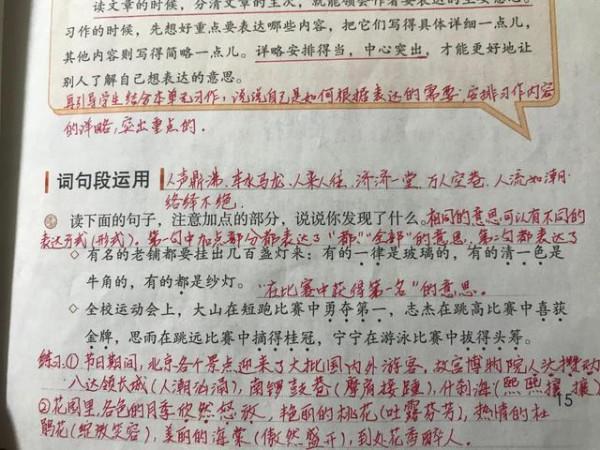 读文章的时候,分清文章的主要信息。
习作的时候,先想好重点要表达哪些内容,把它们写得具体详细一点儿,
其他内容则写得简略一点儿。详略安排得当,中心突出,才能更好地让
别人了解自己想表达的意思。
引导学生结合本单元习作,说说自己是如何根据表达的需要,安排习作内容
的详略,突出重点的。
词句段运用
人声鼎沸、车水马龙、人来人往、济济一堂、万人空巷、人流如潮、
络绎不绝
读下面的句子,注意加点的部分,说说你发现了什么。相同的意思可以有不同的
表达方式(形式)。第一句中加点部分都表达了“都”“全部”的意思,第二句都表达了
◇ 有名的老铺都要挂出几百盏灯来:有的一律是玻璃的,有的清一色是
牛角的,有的都是纱灯。“在比赛中获得第一名”的意思。
◇ 全校运动会上,大山在短跑比赛中勇夺第一,志杰在跳高比赛中喜获
金牌,思雨在跳远比赛中摘得桂冠,宁宁在游泳比赛中拔得头筹。
练习:①节日期间,北京各个景点迎来了大批国内外游客,故宫博物院人头攒动
八达领长城(人潮汹涌),南锣鼓巷(摩肩接踵),什刹海(熙熙攘攘)
②花园里,各色的月季欣然怒放,艳丽的桃花(吐露芬芳),热情的杜
鹃花(绽放笑容),美丽的海棠(傲然盛开),到处花香醉人。
15